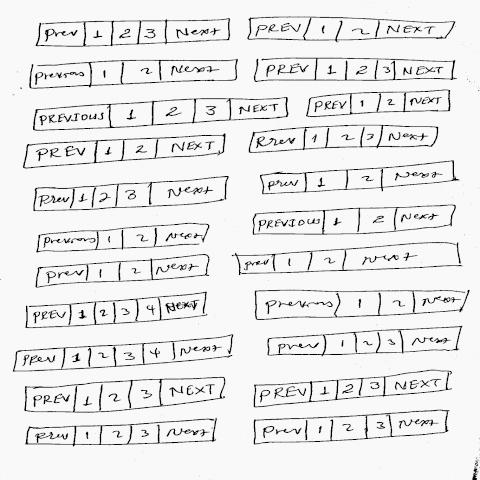 Prev 1 2 3 Next
PREV 1 2 NEXT
Previous 1 2 Next
PREV 1 2 3 NEXT
PREVIOUS 1 2 3 NEXT
PREV 1 2 NEXT
PREV 1 2 NEXT
Prev 1 2 3 Next
Prev 1 2 3 Next
Prev 1 2 Next
Previous 1 2 Next
PREVIOUS 1 2 Next
Prev 1 2 Next
Prev 1 2 Next
PREV 1 2 3 4 NEXT
Previous 1 2 Next
Prev 1 2 3 4 Next
Prev 1 2 3 Next
PREV 1 2 3 NEXT
PREV 1 2 3 NEXT
Prev 1 2 3 Next
Prev 1 2 3 Next